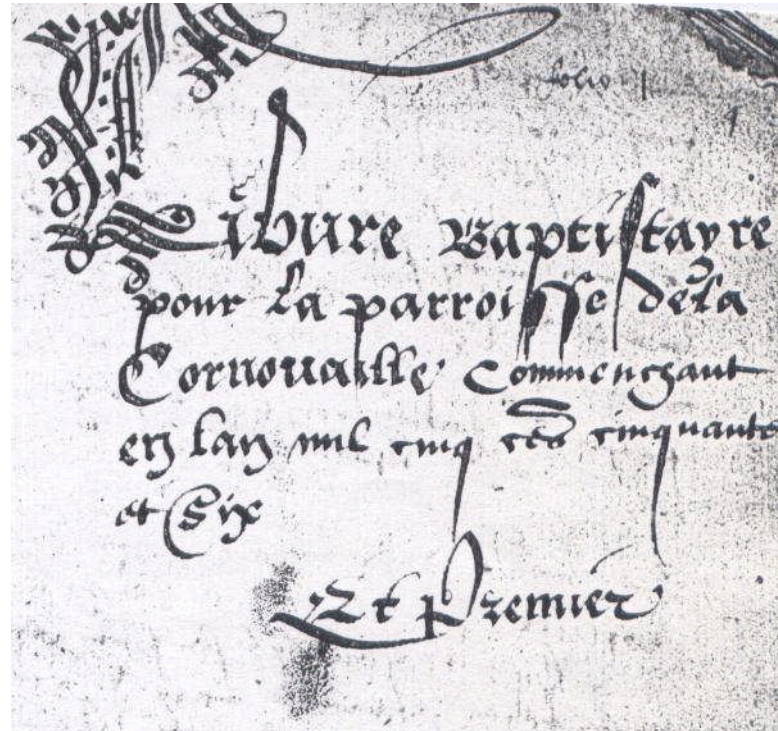 folio 1
1
Libvre Baptistayre
pour La parroisse de la
Cornouaille Commenchant
en Lan mil cinq ces cinquante
et Six
Et Premier